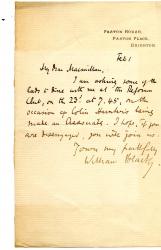 PASTON HOUSE,
PASTON PLACE,
BRIGHTON
Feb 1
My Dear Macmillan,
I am asking some of the
lads to dine with me at the Reform
Club, on the 23d at 7.45, on the
occasion of Colin Hunter's being
made an Associate. I hope, if you
are disengaged, you will join us.
Yours very faithfully
William Black